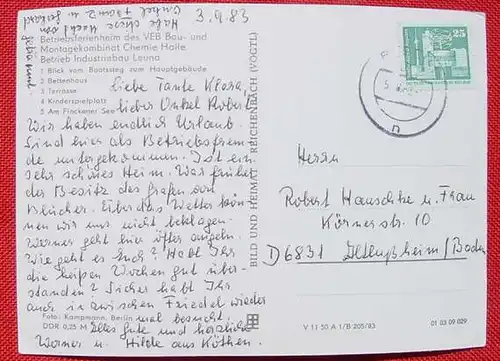 3.9.83
Habe diese noch von
Onkel Franz u. Gerhard
gebr. Kunst.
Betriebsferienheim des VEB Bau- und
Montagekombinat Chemie Halle
Betrieb Industriebau Leuna
1 Blick vom Bootssteg zum Hauptgebäude
2 Bettenhaus
3 Terrasse
4 Kinderspielplatz
5 Am Fleckener See
Liebe Tante Klara,
lieber Onkel Robert!
Wir haben endlich Urlaub.
Sind hier als Betriebsfrem-
de untergekommen. Ist ein
sehr schönes Heim. War früher
der Besitz des Grafen von
Blücher. Über das Wetter kön-
nen wir uns nicht beklagen.
Werner geht hier öfter angeln.
Wie geht es Euch? Habt Ihr
die heißen Wochen gut über-
standen? Sicher habt Ihr
auch inzwischen Friedel wieder
mal besucht.
Alles Gute und herzliche
Werner u. Hilde aus Köthen.
Foto: Kampmann, Berlin
DDR 0,25 M
BILD UND HEIMAT REICHENBACH (VOGTL)
25
Herrn
Robert Hauschke u. Frau
Körnerstr. 10
D 6831 Altlußheim/Baden
V 11 50 A 1/B 205/83
01 03 09 029